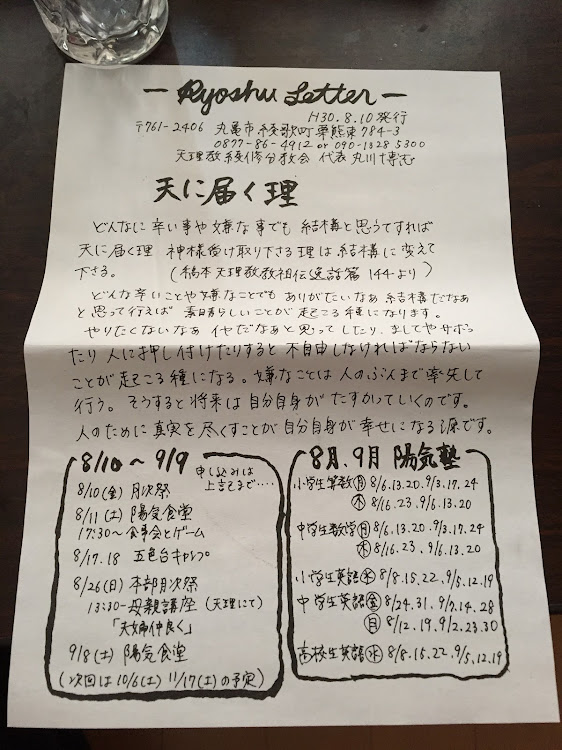 — Ryoshu Letter —
H30.8.10発行
〒761-2406 丸亀市綾歌町栗熊東784-3
0877-86-4912 or 090-1328 5300
天理教綾修分教会 代表 丸川
天に届く理
どんなに辛い事や嫌な事でも 結構と思うてすれば
天に届く理 神様受け取り下さる理は 結構に変えて
下さる。 (稿本天理教教祖伝逸話篇 144より)
どんな辛いことや嫌なことでも ありがたいなぁ 結構だなぁ
と思って行えば 素晴らしいことが起ころ種になります。
やりたくないなぁ イヤだなぁと思ってしたり、ましてやサボっ
たり 人に押し付けたりすると 不自由しなければならない
ことが起ころ種になる。嫌なことは人のぶんまで率先して
行う。そうすると将来は自分自身がたすかっていくのです。
人のために真実を尽くすことが自分自身が幸せになる源です。
8/10〜9/9
申し込みは
上記まで‥‥
8/10(金) 月次祭
8/11(土) 陽気食堂
17:30〜食事会とゲーム
8/17.18 五色台キャンプ
8/26(日) 本部月次祭
13:30-母親講座 (天理にて)
「夫婦仲良く」
9/8(土) 陽気食堂
(次回は 10/6(土) 11/17(土)の予定)
8月、9月 陽気塾
小学生算数 月 8/6.13.20、9/3.17.24
木 8/16.23、9/6.13.20
中学生数学 月 8/6.13.20、9/3.17.24
木 8/16.23、9/6.13.20
小学生英語 水 8/8.15.22、9/5.12.19
中学生英語 金 8/24.31、9/7.14.28
日 8/12.19、9/2.23.30
高校生英語 水 8/8.15.22、9/5.12.19